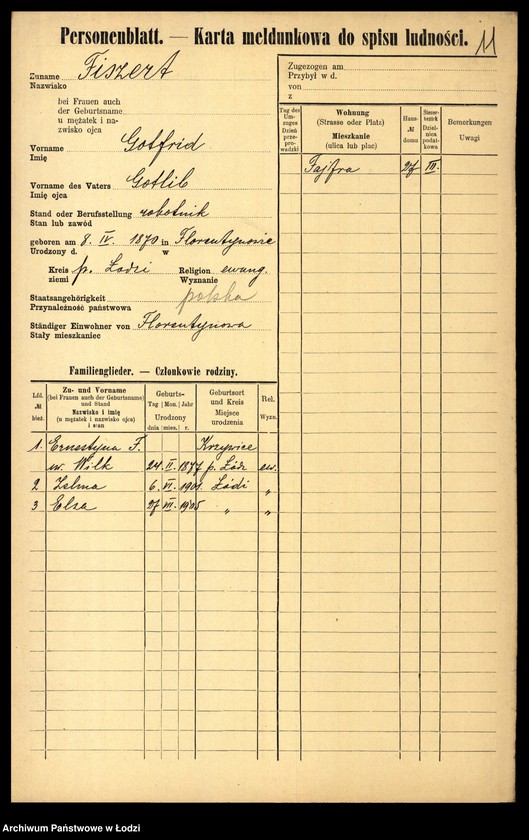 Personenblatt. — Karta meldunkowa do spisu ludności.
11
Zuname Fiszert
Nazwisko
bei Frauen auch
der Geburtsname
u mężatek i na-
zwisko ojca
Vorname Gotfrid
Imię
Vorname des Vaters Gotlib
Imię ojca
Stand oder Berufsstellung robotnik
Stan lub zawód
geboren am 8. IV. 1870 in Florentynowie
Urodzony d. w
Kreis p. Łodzi Religion ewang.
ziemi Wyznanie
Staatsangehörigkeit polska
Przynależność państwowa
Ständiger Einwohner von Florentynowa
Stały mieszkaniec
Familienglieder. — Członkowie rodziny.
Lfd. № bież.
Zu- und Vorname
(bei Frauen auch der Geburtsname)
und Stand
Nazwisko i imię
(u mężatek i nazwisko ojca)
i stan
Geburts-
Tag Mon. Jahr
Urodzony
dnia mies. r.
Geburtsort
und Kreis
Miejsce
urodzenia
Rel.
Wyzn.
1. Ernestyna F. Krzywice
ur. Wilk 24. II. 1877 p. Łódz. ew.
2 Zelma 6. VI. 1901 Łódź "
3 Elza 27 VII. 1905 " "
Zugezogen am
Przybył w d.
von
z
Tag des Um-
zuges
Dzień
prze-
prowadzki
Wohnung
(Strasse oder Platz)
Mieszkanie
(ulica lub plac)
Haus-
№
domu
Steuer-
bezirk
Dziel-
nica
podat-
kowa
Bemerkungen
Uwagi
Fajfra 27 III.
Archiwum Państwowe w Łodzi